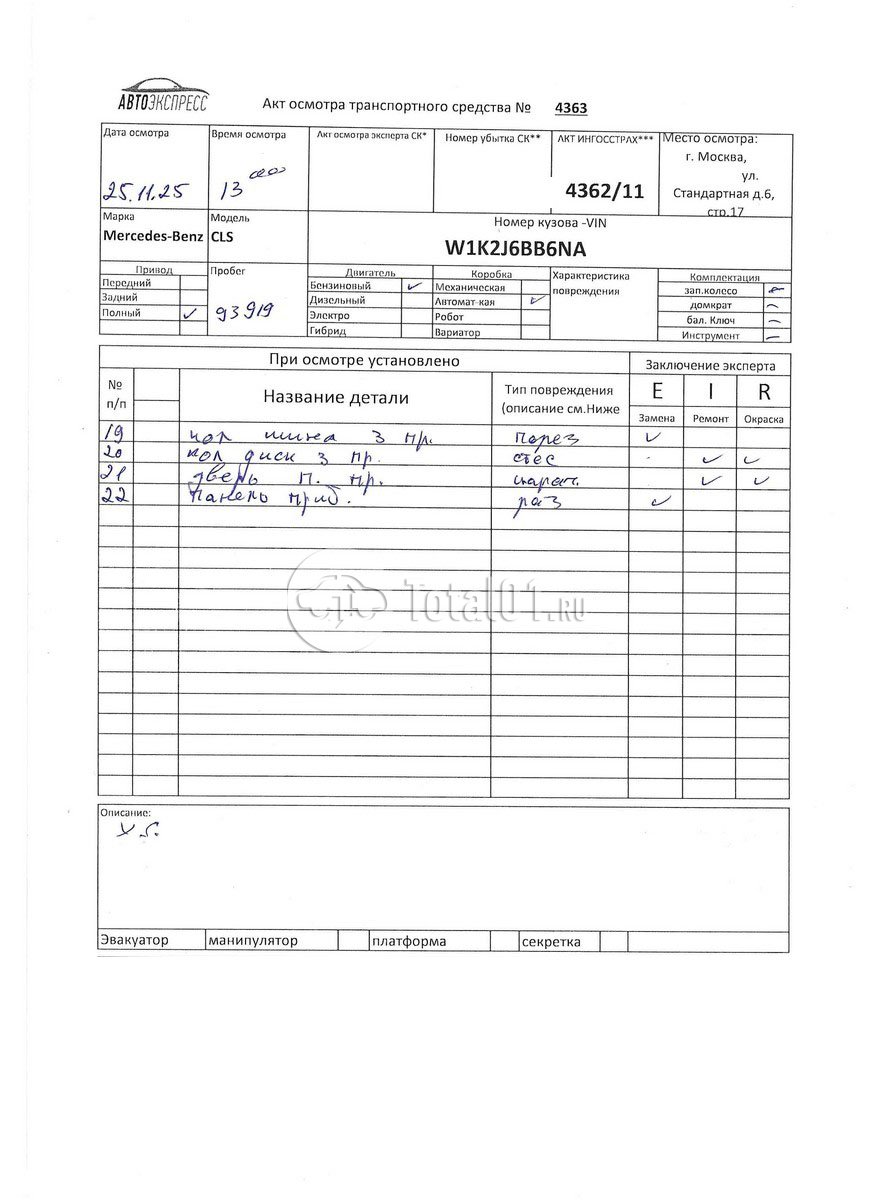 АВТОЭКСПРЕСС
Акт осмотра транспортного средства № 4363
Дата осмотра
25.11.25
Время осмотра
13 00
Акт осмотра эксперта СК*
Номер убытка СК**
АКТ ИНГОССТРАХ***
4362/11
Место осмотра:
г. Москва,
ул.
Стандартная д.6,
стр.17
Марка
Mercedes-Benz
Модель
CLS
Номер кузова -VIN
W1K2J6BB6NA
Привод
Передний
Задний
Полный ✓
Пробег
93919
Двигатель
Бензиновый ✓
Дизельный
Электро
Гибрид
Коробка
Механическая
Автомат-кая ✓
Робот
Вариатор
Характеристика
повреждения
Комплектация
зап.колесо
домкрат
бал. Ключ
Инструмент
При осмотре установлено
Заключение эксперта
№
п/п
Название детали
Тип повреждения
(описание см.Ниже
E I R
Замена Ремонт Окраска
19 кол шина з пр. порез ✓
20 кол диск з пр. стес ✓ ✓
21 дверь п. пр. царап. ✓ ✓
22 панель приб. раз ✓
Total01.RU
Описание:
Эвакуатор манипулятор платформа секретка